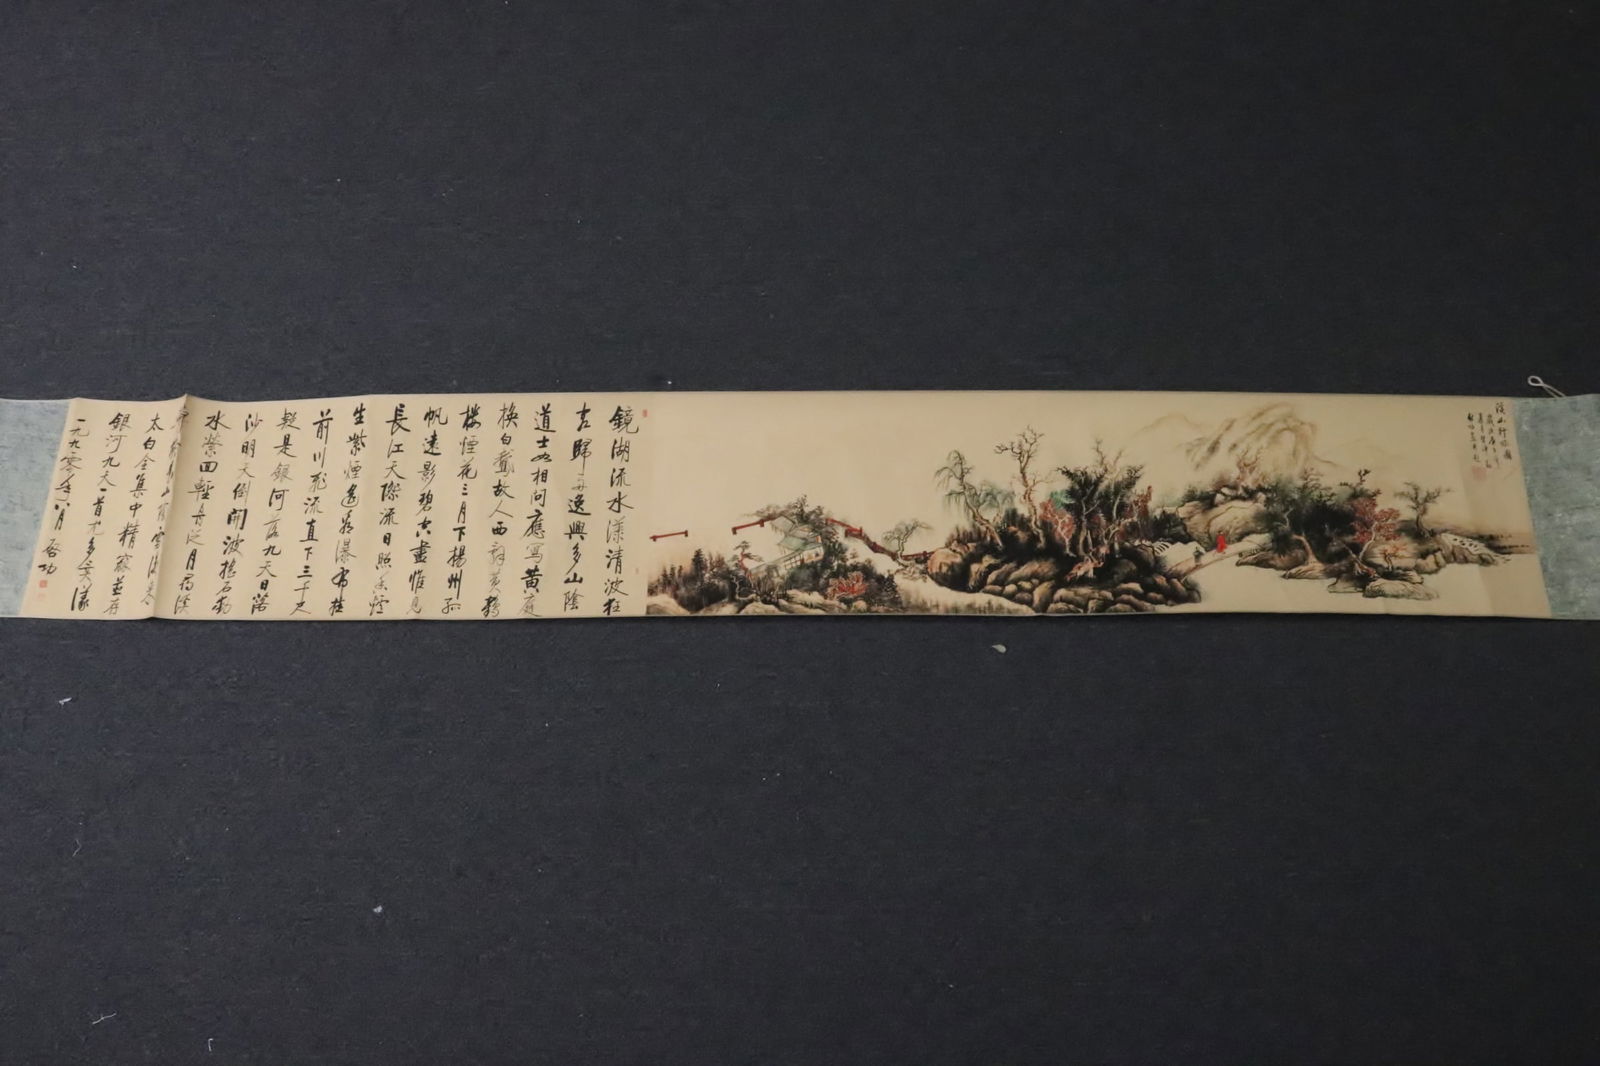 溪山行旅圖
鏡湖流水漾清波狂
客歸舟逸興多山陰
道士如相問應寫黃庭
換白鵞故人西辭黃鶴
樓煙花三月下揚州孤
帆遠影碧空盡惟見
長江天際流日照香爐
生紫煙遙看瀑布挂
前川飛流直下三千尺
疑是銀河落九天日落
沙明天倒開波搖石動
水縈回輕舟泛月尋溪
太白全集中精
銀河九天一首
一九九零年八月
啓功